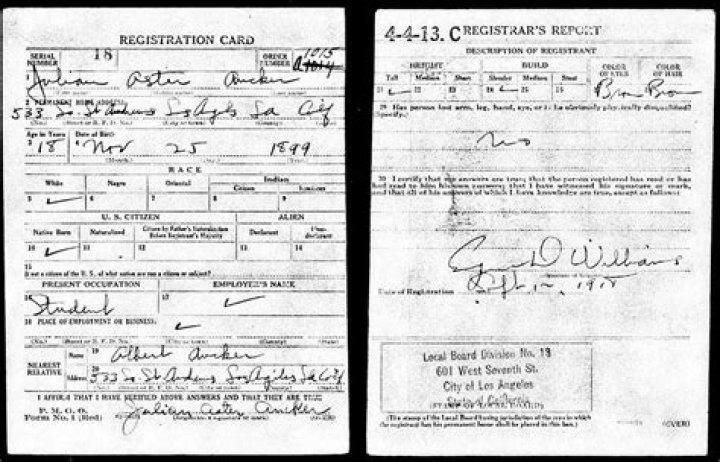 REGISTRATION CARD
SERIAL NUMBER 18
ORDER NUMBER 1015
Julian Aster Aucker
2 PERMANENT HOME ADDRESS:
533 So. St Andrews Los Angeles La Calif
(No.) (Street or R. F. D. No.) (City or town) (County) (State)
Age in Years Date of Birth
3 18 4 Nov 25 1899
(Month.) (Day.) (Year.)
RACE
White Negro Oriental Indian
Citizen Noncitizen
5 ✓ 6 7 8 9
U. S. CITIZEN ALIEN
Native Born Naturalized Citizen by Father's Naturalization Before Registrant's Majority Declarant Non-declarant
10 ✓ 11 12 13 14
15
If not a citizen of the U. S., of what nation are you a citizen or subject?
PRESENT OCCUPATION EMPLOYER'S NAME
16 Student 17 ✓
18 PLACE OF EMPLOYMENT OR BUSINESS:
✓
(No.) (Street or R. F. D. No.) (City or town) (County) (State)
NEAREST RELATIVE
Name 19 Albert Aucker
Address 20 533 So. St Andrews Los Angeles La Calif
(No.) (Street or R. F. D. No.) (City or town) (County) (State)
I AFFIRM THAT I HAVE VERIFIED ABOVE ANSWERS AND THAT THEY ARE TRUE
P. M. G. O.
Form No. 1 (Red) Julian Aster Aucker
4-4-13. C REGISTRAR'S REPORT
DESCRIPTION OF REGISTRANT
HEIGHT BUILD COLOR OF EYES COLOR OF HAIR
Tall Medium Short Slender Medium Stout
21 ✓ 22 23 24 ✓ 25 26 Brown Brown
29 Has person lost arm, leg, hand, eye, or is he obviously physically disqualified?
(Specify.)
No
30 I certify that my answers are true; that the person registered has read or has
had read to him his own answers; that I have witnessed his signature or mark,
and that all of his answers of which I have knowledge are true, except as follows:
D Williams
Date of Registration Sept. 12, 1918
Local Board Division No. 13
601 West Seventh St.
City of Los Angeles
State of California
(The stamp of the Local Board having jurisdiction of the area in which
the registrant has his permanent home shall be placed in this box.)
(OVER)